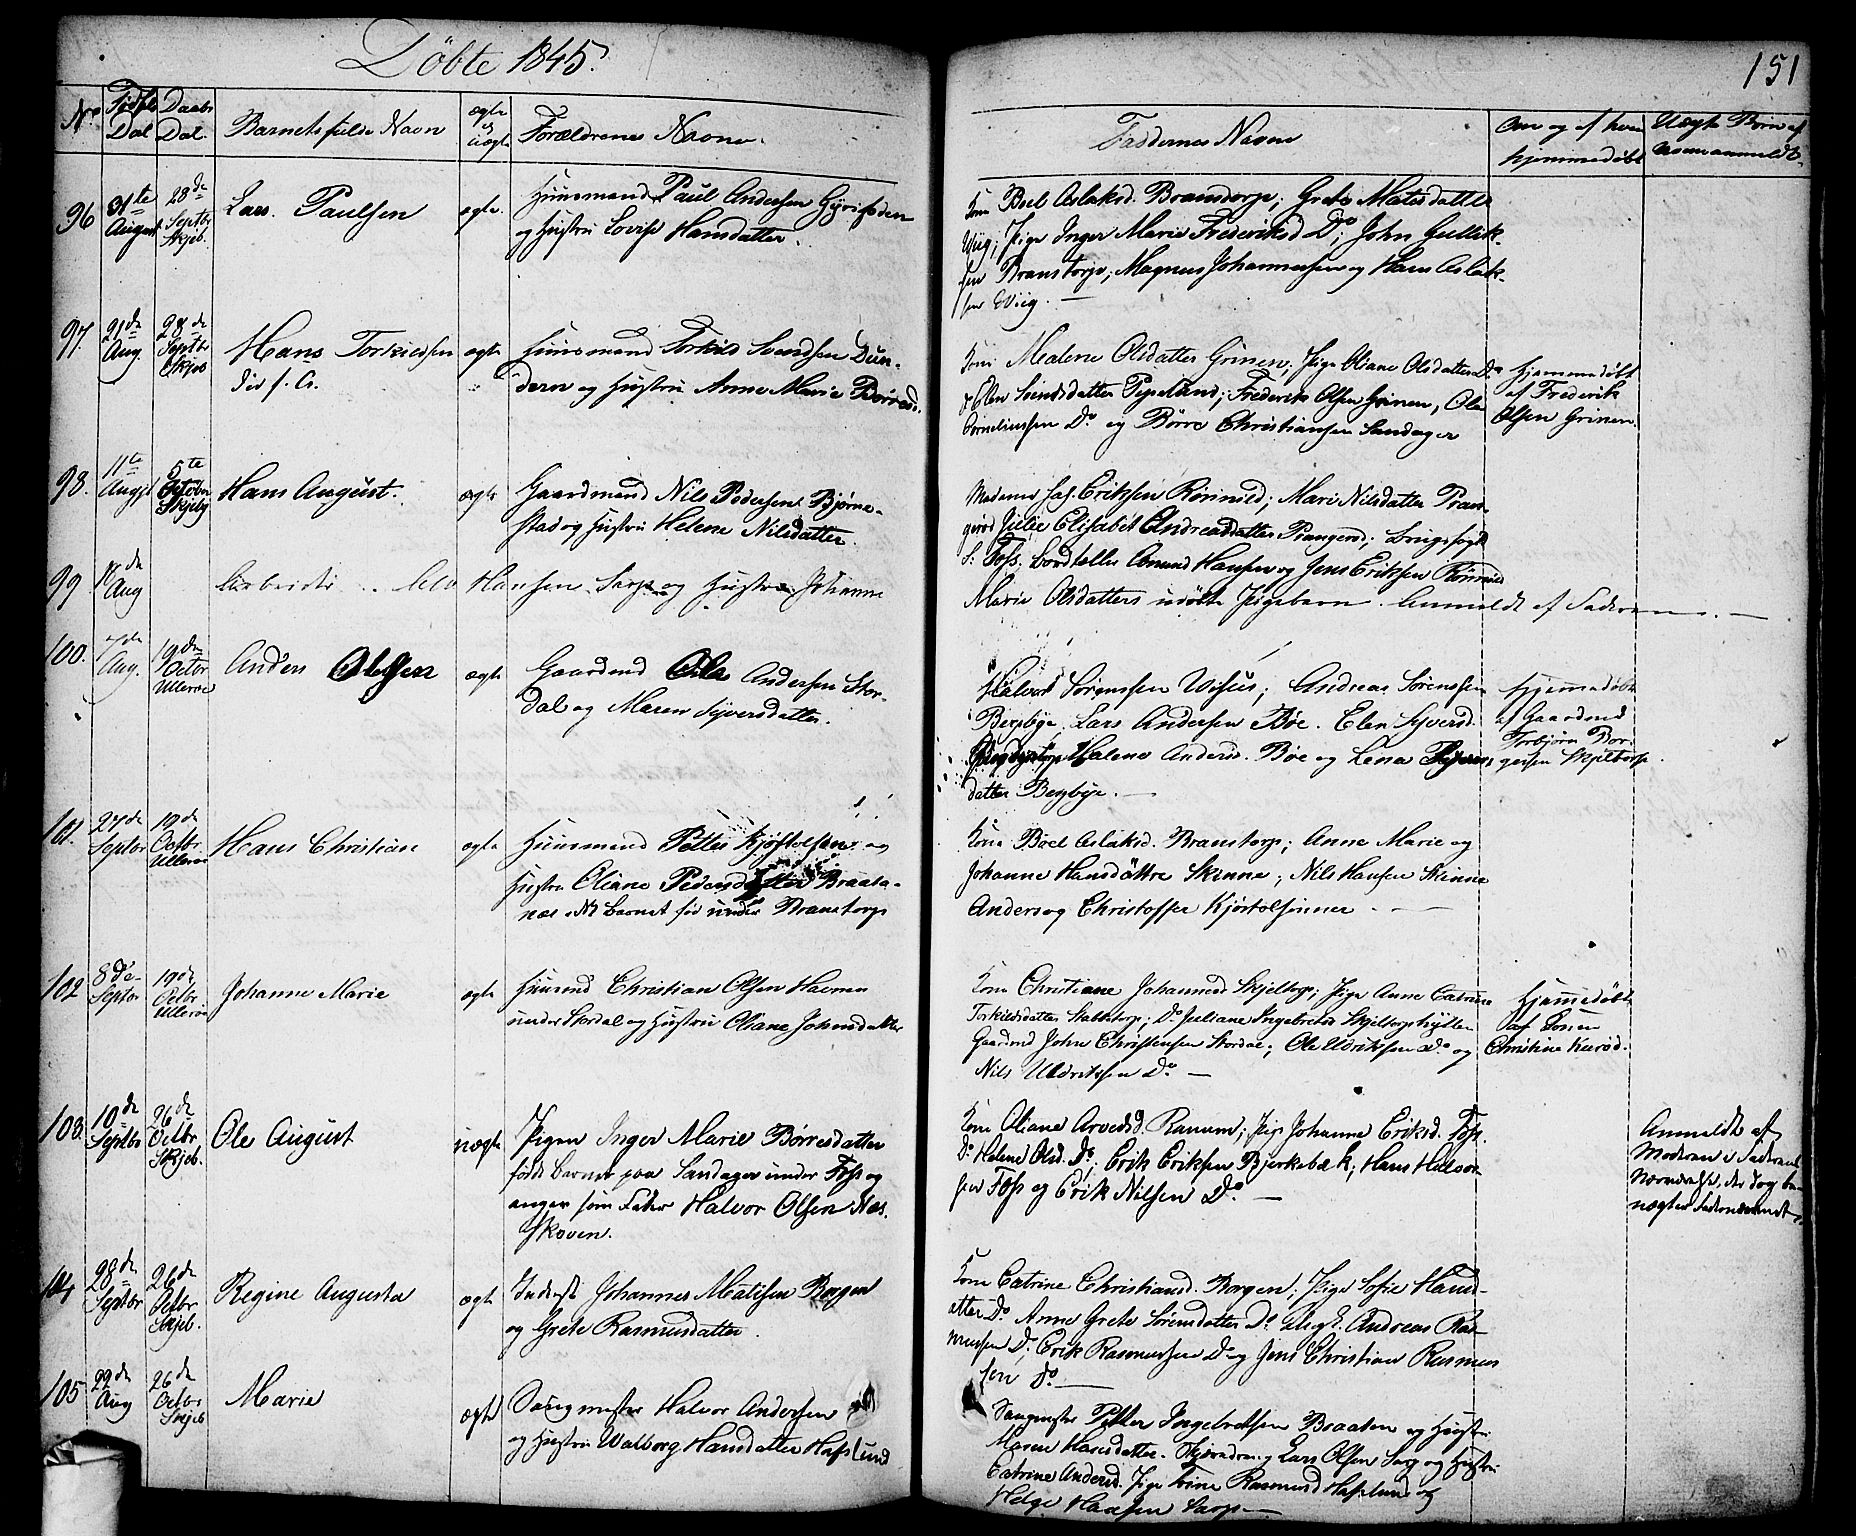 Döbte 1845.
151
No
Fødsls Dat
Daabs Dat.
Barnets fulde Navn
ægte el uægte
Forældrenes Navne.
Faddernes Navne
Om og af hvem hjemmedøbt
Uægte Børn af
96
31te August
28de Septbr Skjeb.
Lars. Paulsen
ægte.
Huusmand Paul Andersen
og Hustru Lovise Hansdatter.
Kone Buel Aslaksd. Branstorp; Grete Matisdatter
Viig; Pige Inger Marie Frederiksd Do; John Gullik-
sen Branstorp; Magnus Johannessen og Hans Aslak-
sen Viig. —
97.
21de Aug.
28de Septbr Skjeb
Hans Torkildsen
død f. A.
ægte
Huusmand Torkild Svendsen Dun-
deren og Hustru Anne Marie Børresd.
Kone Malene Olsdatter Grinen; Pige Oliane Olsdatter Do
& Elen Svendsdatter; Frederik Olsen Grinen, Ole
Corneliussen Do og Børre Christiansen Sandager
Hjemmedøbt
af Frederik
Olsen Grinen.
98.
11te Augst
5te Octobr Skjeby
Hans August.
ægte
Gaardmand Nils Pedersen Bjørne-
stad og Hustru Helene Nilsdatter.
Madame Jas. Eriksen Rønnild; Mari Nilsdatter Pran-
gerød Julie Elisabet Andreasdatter Prangerød;
S. Foss. Amund Hansen og Jens Eriksen Rønnild
99
Aug
Arbeider Hansen Sarp og Hustru Johanne
Marie Olsdatters udøbte Pigebarn. Anmeldt af Faderen. —
100.
7de Aug.
19de Octbr Ullerøe
Anders Olsen
ægte
Gaardmd Ole Andersen Stor-
dal og Maren Syversdatter.
Halvor Sørenssen Wisus; Andreas Sørenssen
Bergbye, Lars Andersen Bøe. Elen Syversd.
Halene Andersd. Bøe og Lena Syvers-
datter Bergbye. —
Hjemmedøbt
af Gaardmd
Torbjørn Bør-
gersen Skjeltorp.
101.
27de Septbr
19de Octbr Ullerøe
Hans Christian
ægte
Huusmand Petter Kjøstolsen og
Hustru Oliane Pedersdatter Braata-
næs NB Barnet før under Branstorp
Kone Boel Aslaksd. Branstorp; Anne Marie og
Johanne Hansdøttre Skinne; Nils Hansen Skinne
Anders og Christoffer Kjøstolsønner —
102
8de Septbr
19de Octbr Ullerøe
Johanne Marie
ægte
Huusmd Christian Olsen Havnen
under Stordal og Hustru Oliane Johnsdatter
Kone Christiane Johannesd Skjeltorp; Pige Anne Catrine
Torkildsdatter Stabbetorp; Do Juliane Ingebretsd Skjeltorphytten
Gaardmd John Christensen Stordal; Ole Uldriksen Do og
Nils Uldriksen Do —
Hjemmedøbt
af Konen
Christine
103.
10de Septbr
26de Octbr, Skjeb.
Ole August
uægte
Pigen Inger Marie Børresdatter
født Barnet paa Sandager under Foss og
angav som Fader Halvor Olsen Næs.
Skoven.
Kone Oliane Arvedsd. Ranum; Pige Johanne Eriksd. Foss.
Do Helene Olsd. Do; Erik Eriksen Bjerkebæk; Hans Halvor-
sen Foss og Erik Nilsen Do —
Anmeldt af
Moderen i Faderens
Nærværelse, der dog be-
nægter
104
28de Septbr
26de Octbr Skjeb.
Regine Augusta
ægte
Inderst Johannes Matisen Borgen
og Grete Rasmusdatter.
Kone Catrine Christiansd. Borgen; Pige Sofie Hans-
datter Do. Anne Grete Sørensdatter Do Andreas Ras-
mussen Do; Erik Rasmussen Do og Jens Christian Rasmus
sen Do —
105
22de Aug
26de Octbr Skjeb
Marie
ægte
Saugmester Halvor Andersen
og Hustru Walborg Hansdatter Hafslund
Saugmester Petter Ingebretsen Braaten og Hustru
Maren Hansdatter. Lars Olsen Sarp og Hustru
Catrine Andersd. Pige Trine Rasmusd Hafslund og
Helge Hansen Sarp —